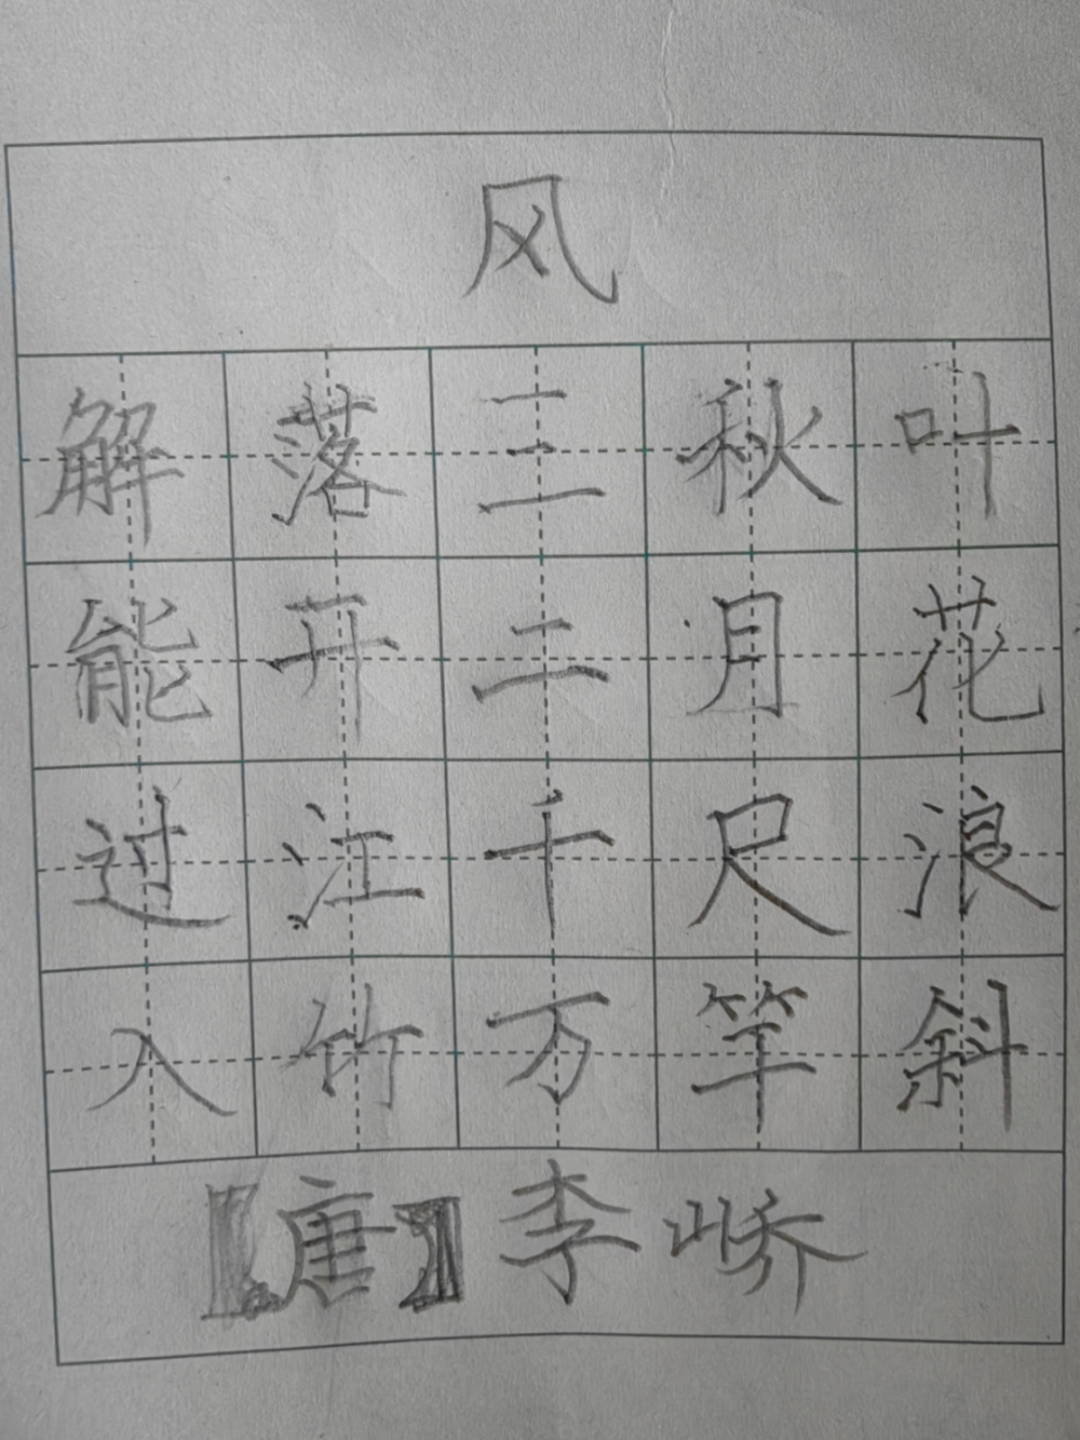 风
解落三秋叶
能开二月花
过江千尺浪
入竹万竿斜
【唐】李峤